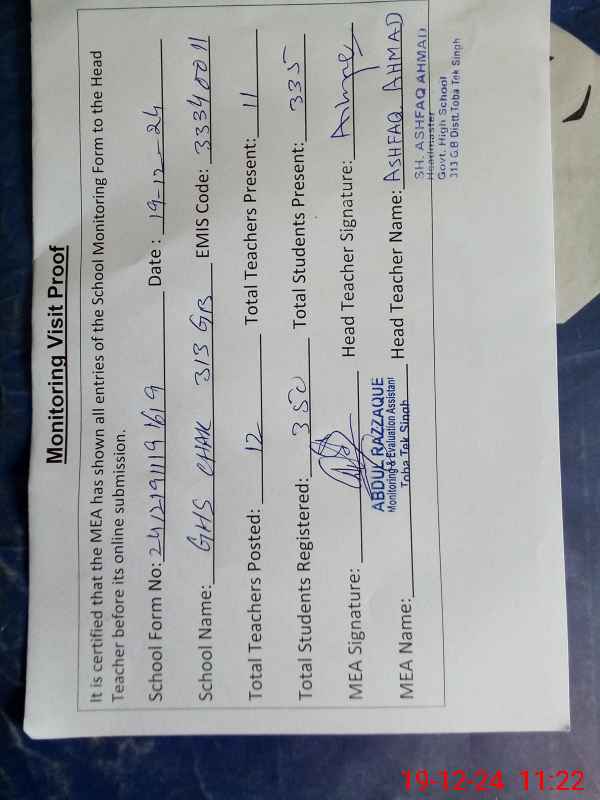 Monitoring Visit Proof
It is certified that the MEA has shown all entries of the School Monitoring Form to the Head
Teacher before its online submission.
School Form No: 24121911191619 Date : 19-12-24
School Name: GHS CHAK 313 GB EMIS Code: 33340011
Total Teachers Posted: 12 Total Teachers Present: 11
Total Students Registered: 350 Total Students Present: 335
MEA Signature: Head Teacher Signature:
ABDUL RAZZAQUE
Monitoring & Evaluation Assistant
Toba Tek Singh
MEA Name: Head Teacher Name: ASHFAQ AHMAD
SH. ASHFAQ AHMAD
Headmaster
Govt. High School
313 G.B Distt. Toba Tek Singh
19-12-24 11:22